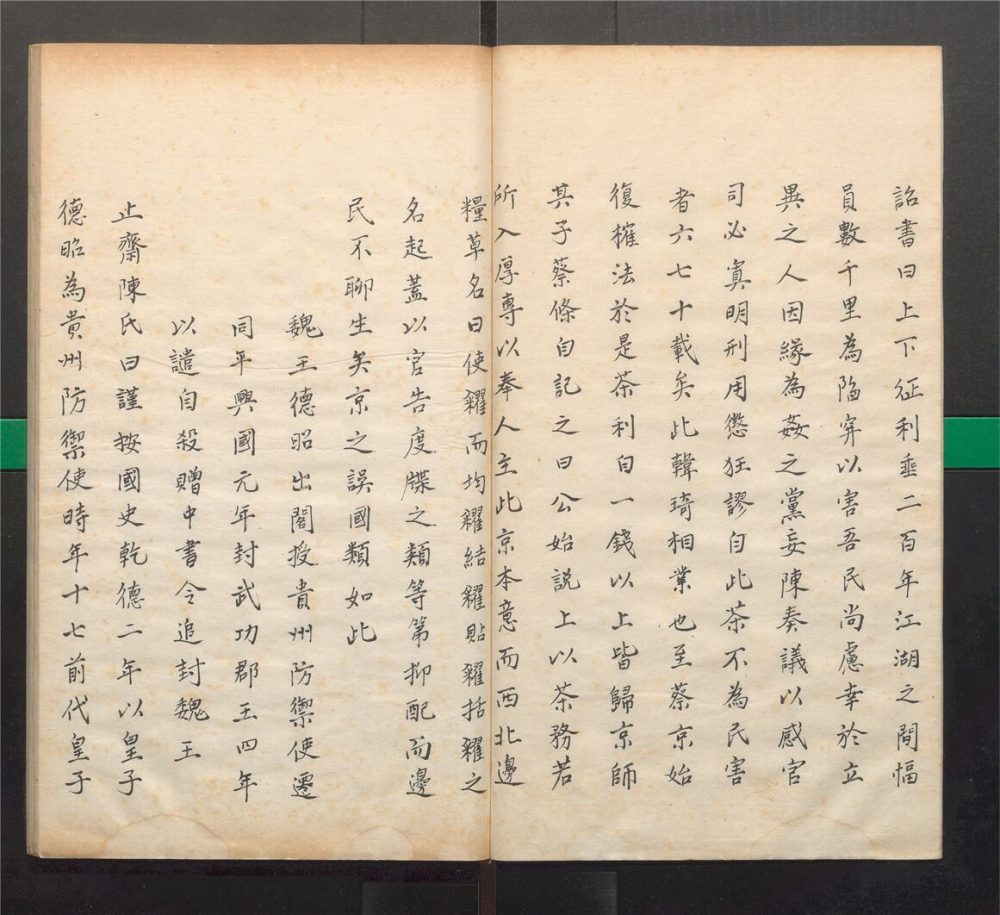 詔書曰上下征利垂二百年江湖之間幅
員數千里為陷穽以害吾民尚慮幸於立
異之人因緣為姦之黨妄陳奏議以感官
司必寘明刑用懲狂謬自此茶不為民害
者六七十載矣此韓琦相業也至蔡京始
復榷法於是茶利自一錢以上皆歸京師
其子蔡絛自記之曰公始説上以茶務若
所入厚專以奉人主此京本意而西北邊
糧草名曰使糴而均糴結糴貼糴括糴之
名起蓋以官告度牒之類等第抑配而邊
民不聊生矣京之誤國類如此
魏王德昭出閣授貴州防禦使遷
同平興國元年封武功郡王四年
以譴自殺贈中書令追封魏王
止齋陳氏曰謹按國史乾德二年以皇子
德昭為貴州防禦使時年十七前代皇子